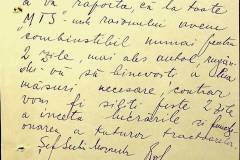 a vă raporta, că la toate
"MTS"-urile raionului avem
combustibil numai pentru
2 zile, mai ales autol, rugăm
să binevoiți a lua
măsuri necesare, contrar
vom fi siliți peste 2 zile
a înceta lucrările și
a tuturor tractoarelor,
Șef Secției